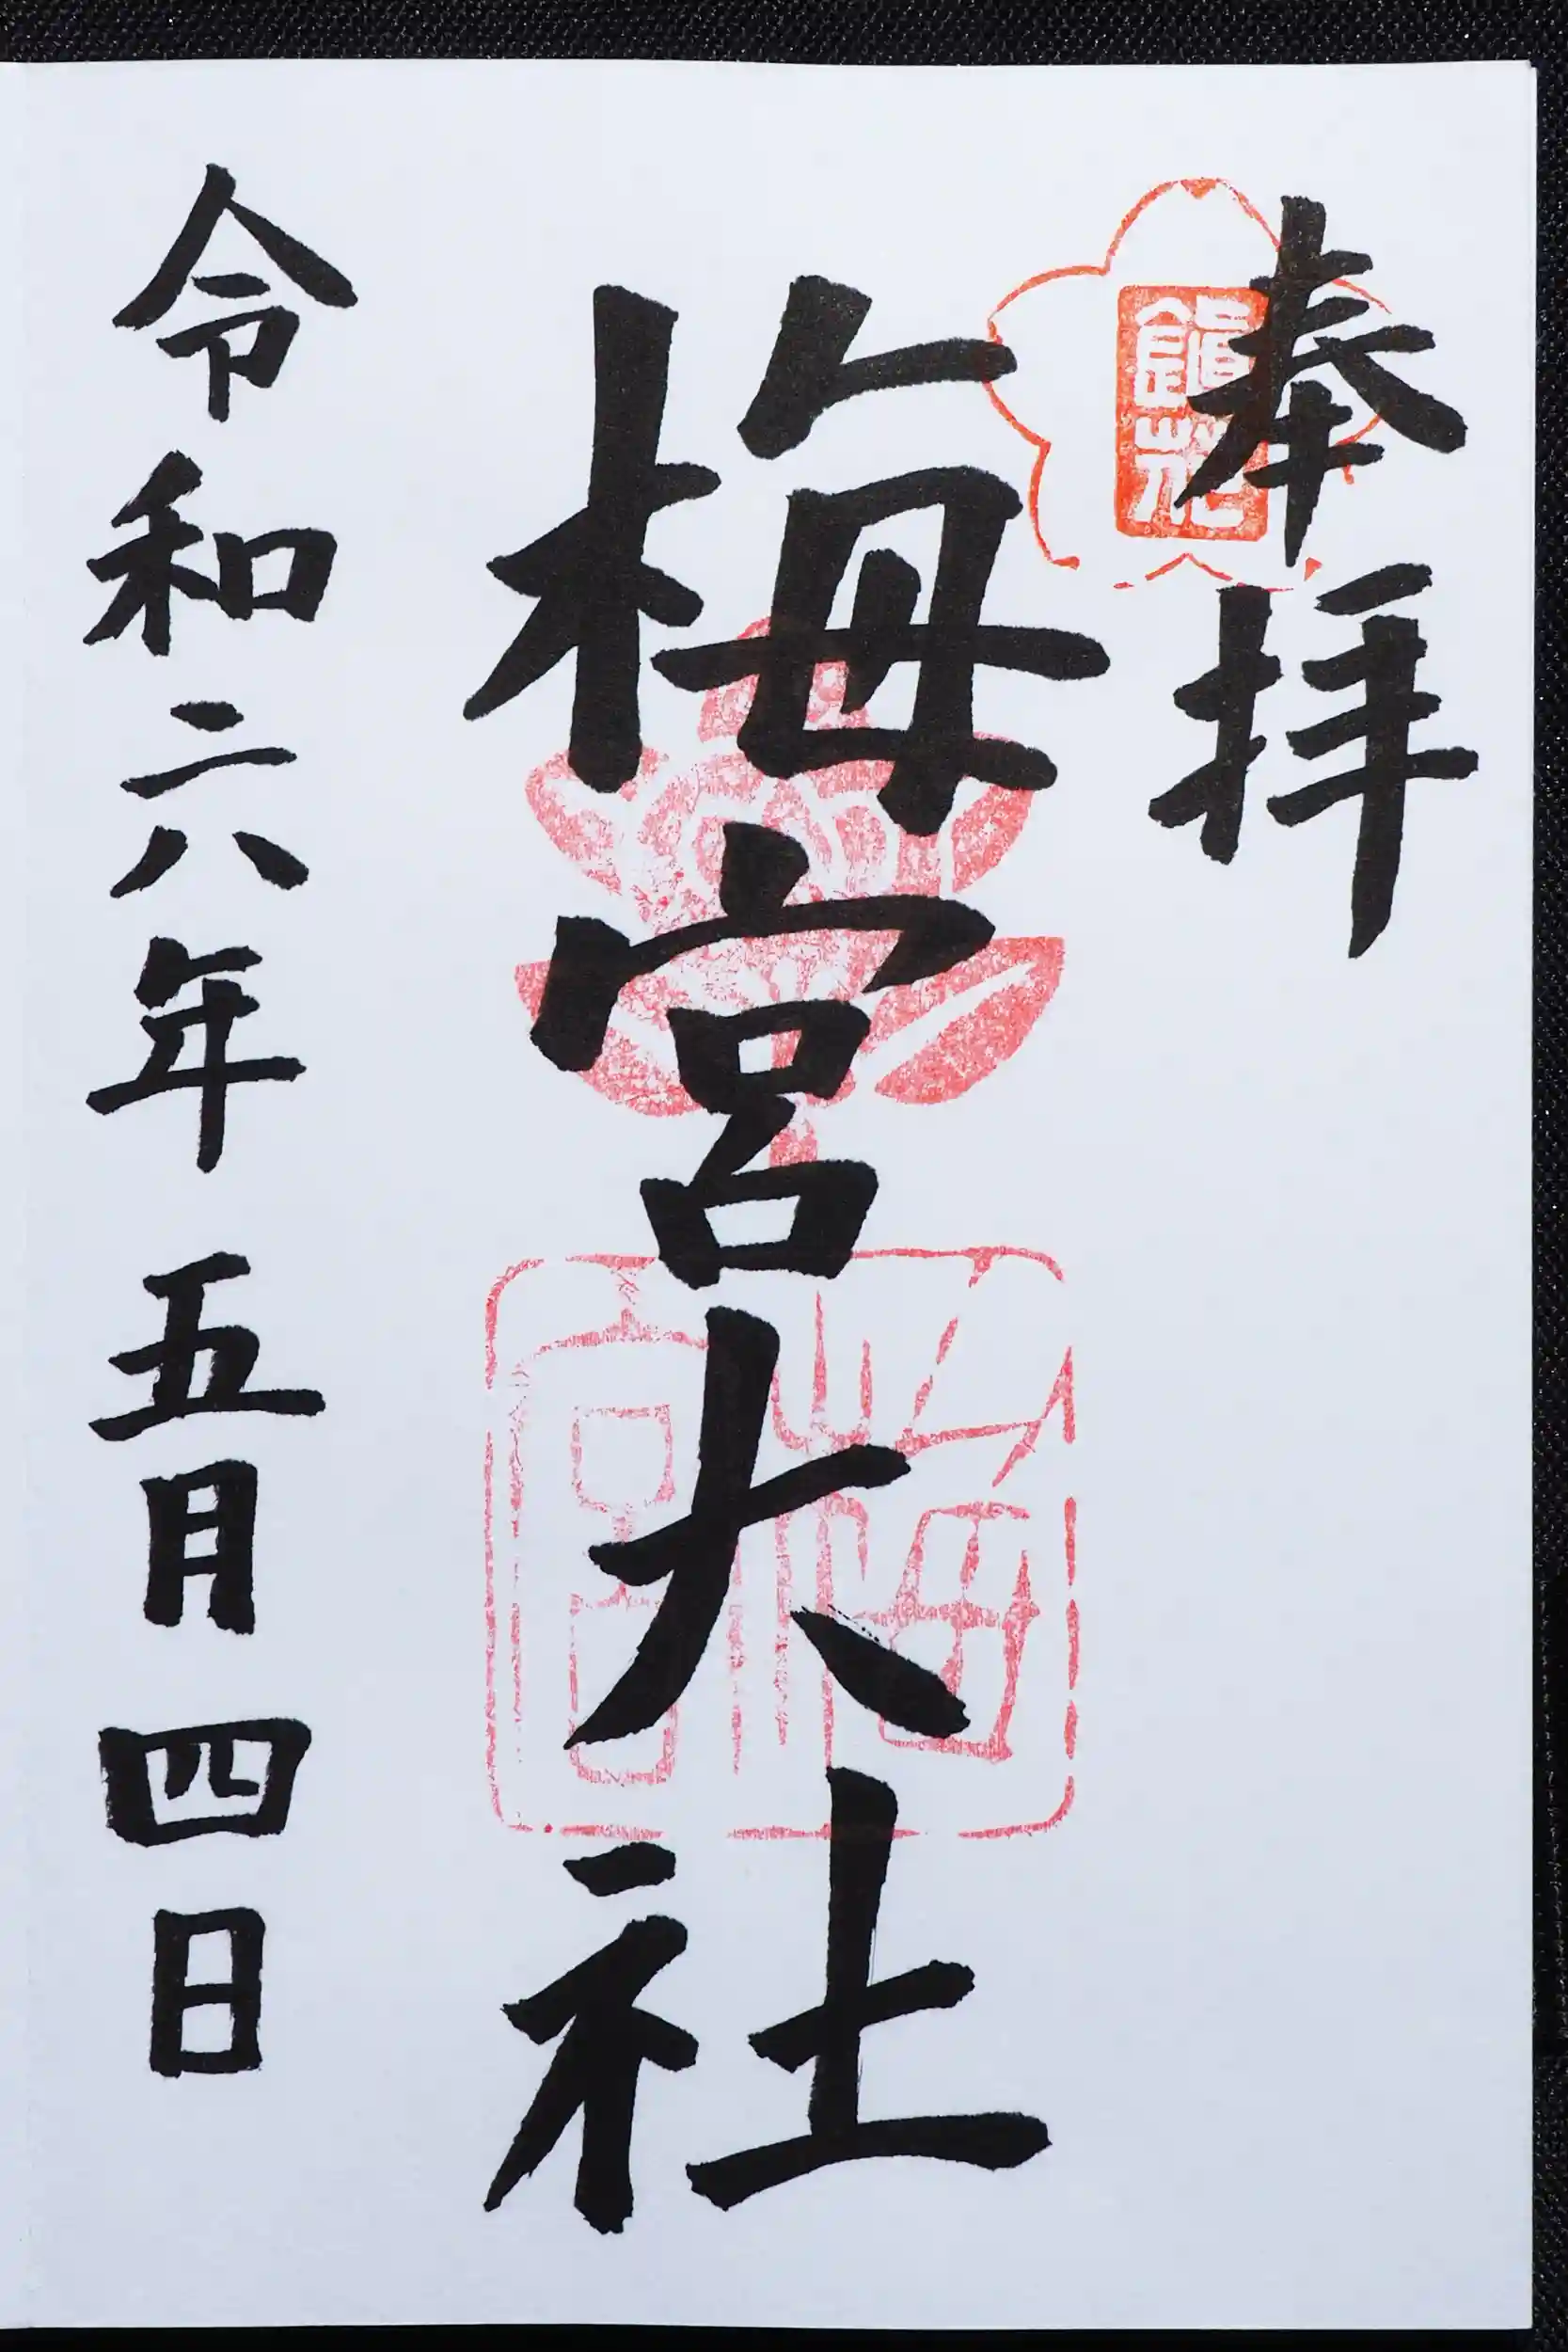 奉拝
梅宮大社
梅宮
令和六年五月四日